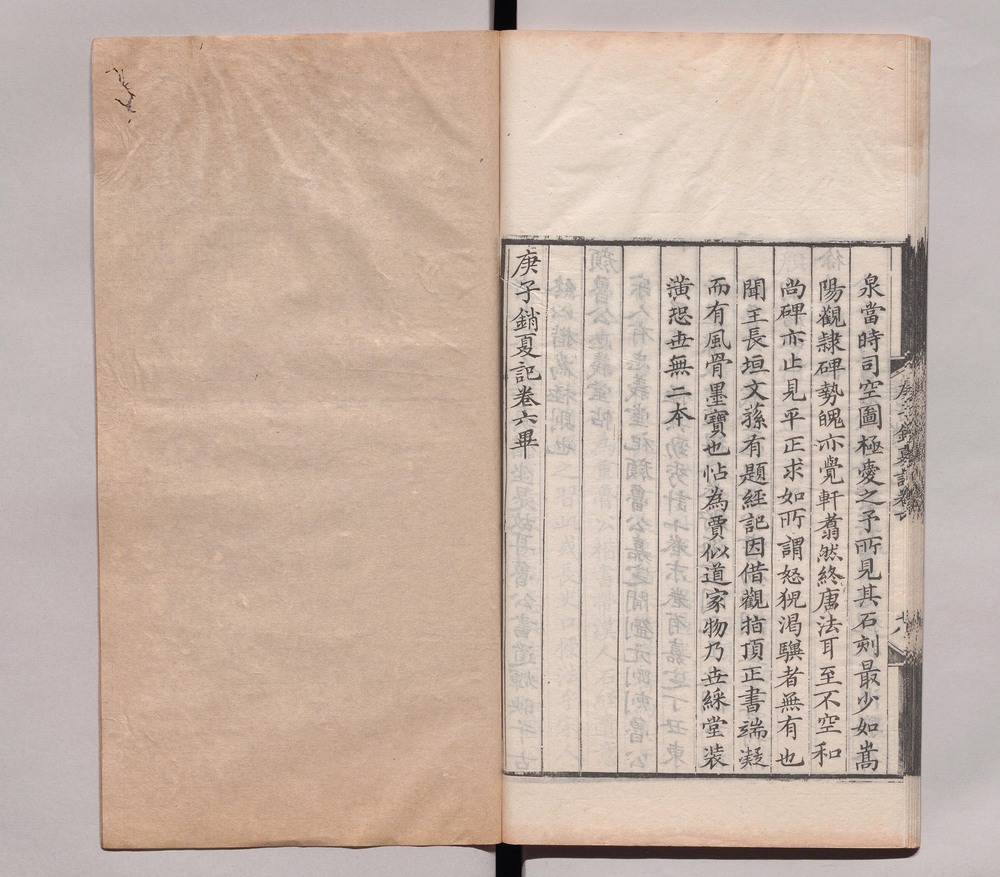 泉當時司空圖極愛之予所見其石刻最少如嵩
陽觀隷碑勢魄亦覺軒翥然終唐法耳至不空和
尚碑亦止見平正求如所謂怒猊渴驥者無有也
聞王長垣文蓀有題經記因借觀指頂正書端凝
而有風骨墨寶也帖為賈似道家物乃世綵堂裝
潢恐世無二本
庚子銷夏記卷六畢